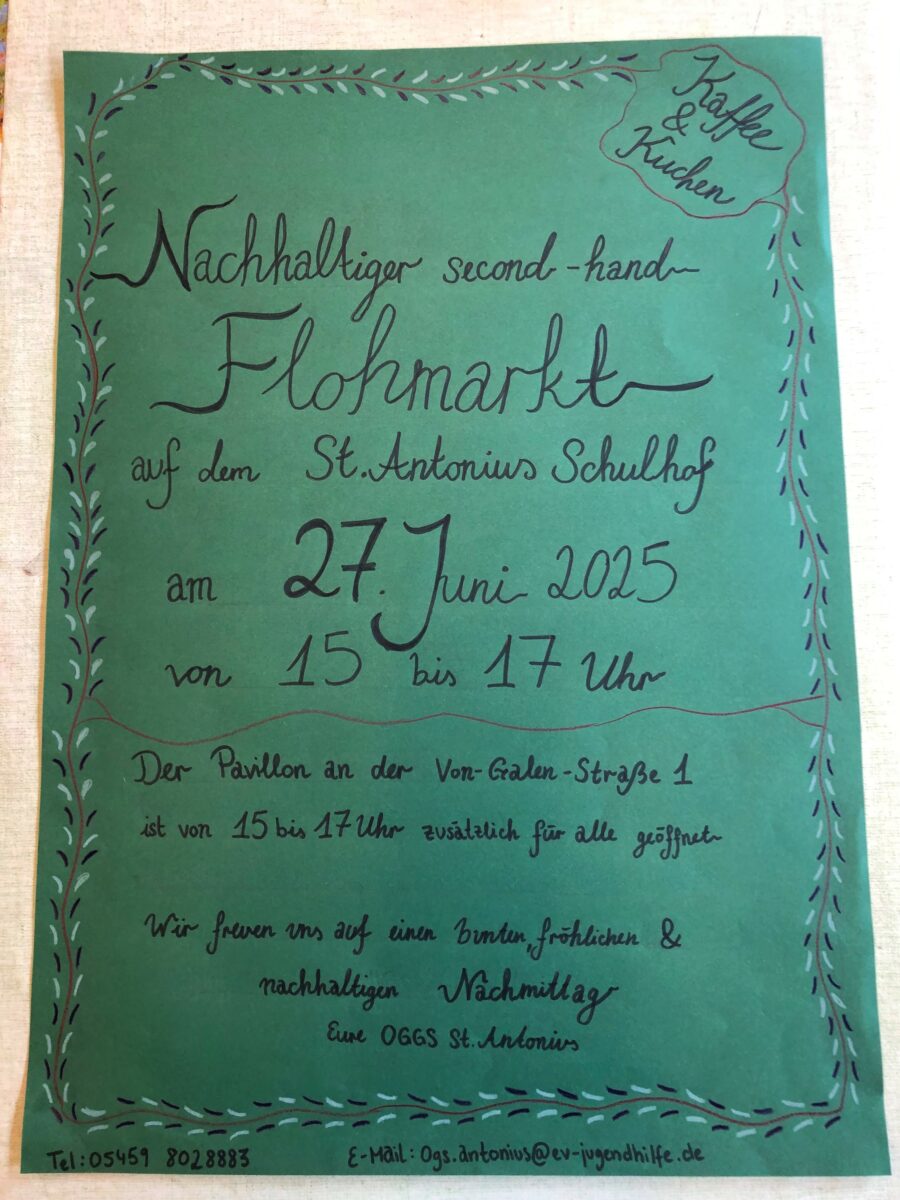 Kaffee
&
Kuchen
Nachhaltiger second-hand
Flohmarkt
auf dem St. Antonius Schulhof
am 27. Juni 2025
von 15 bis 17 Uhr
Der Pavillon an der Von-Galen-Straße 1
ist von 15 bis 17 Uhr zusätzlich für alle geöffnet
Wir freuen uns auf einen bunten, fröhlichen &
nachhaltigen Nachmittag
Eure OGGS St. Antonius
Tel: 05459 8028883 E-Mail: Ogs.antonius@ev-jugendhilfe.de